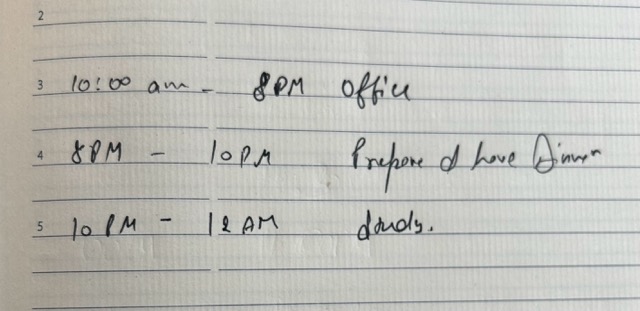 2
3 10:00 am - 8PM Office
4 8PM - 10PM Prepare & have Dinner
5 10PM - 12AM Study.